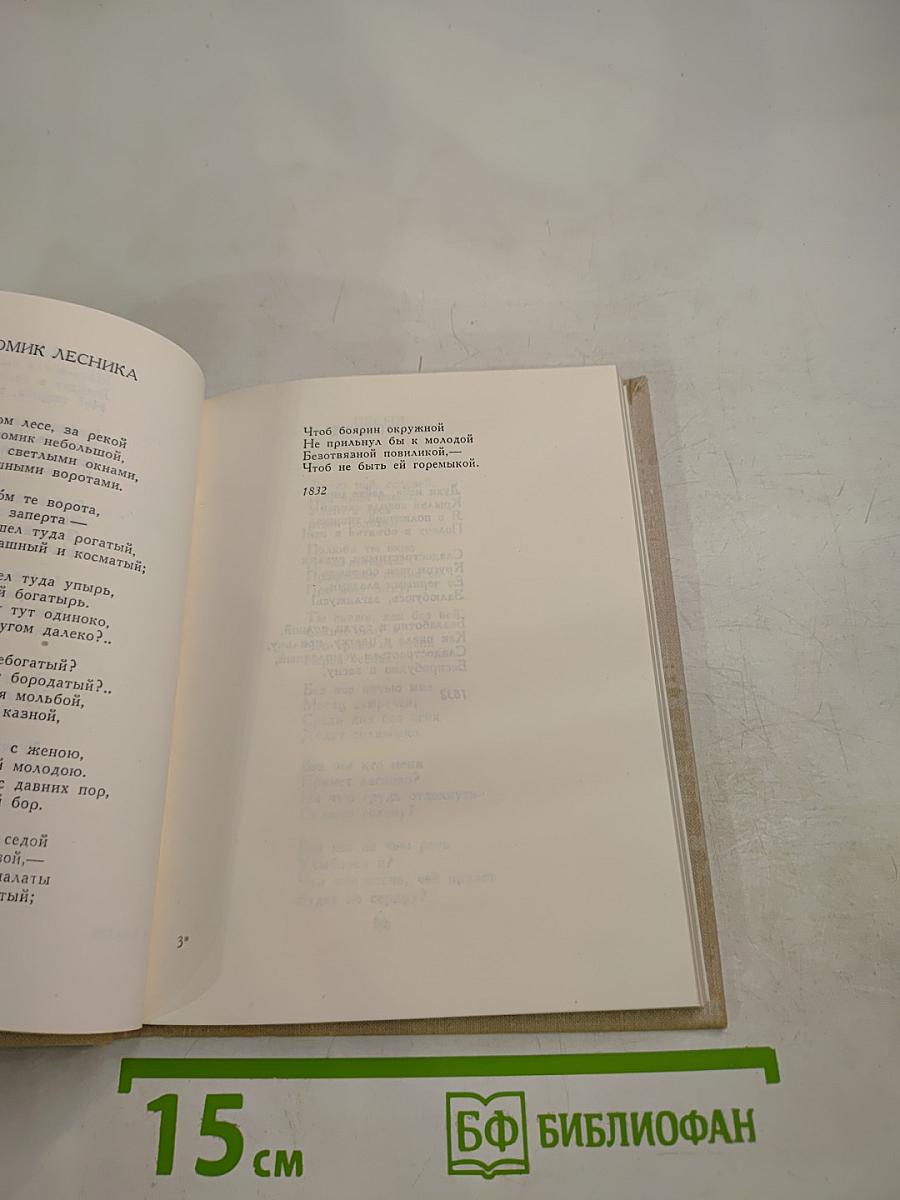 ОМИК ЛЕСНИКА
ом лесе, за рекой
омик небольшой,
светлыми окнами,
ными воротами.
те ворота,
заперта —
шел туда рогатый,
ашный и косматый;
ел туда упырь,
й богатырь.
тут одиноко,
угом далеко?..
ебогатый?
бородатый?..
я мольбой,
казной,
с женою,
й молодою.
с давних пор,
й бор.
седой
вой,—
палаты
тый;
Чтоб боярин окружной
Не прильнул бы к молодой
Безотвязной повиликой,—
Чтоб не быть ей горемыкой.
1832
3*
15 см
БФ БИБЛИОФАН